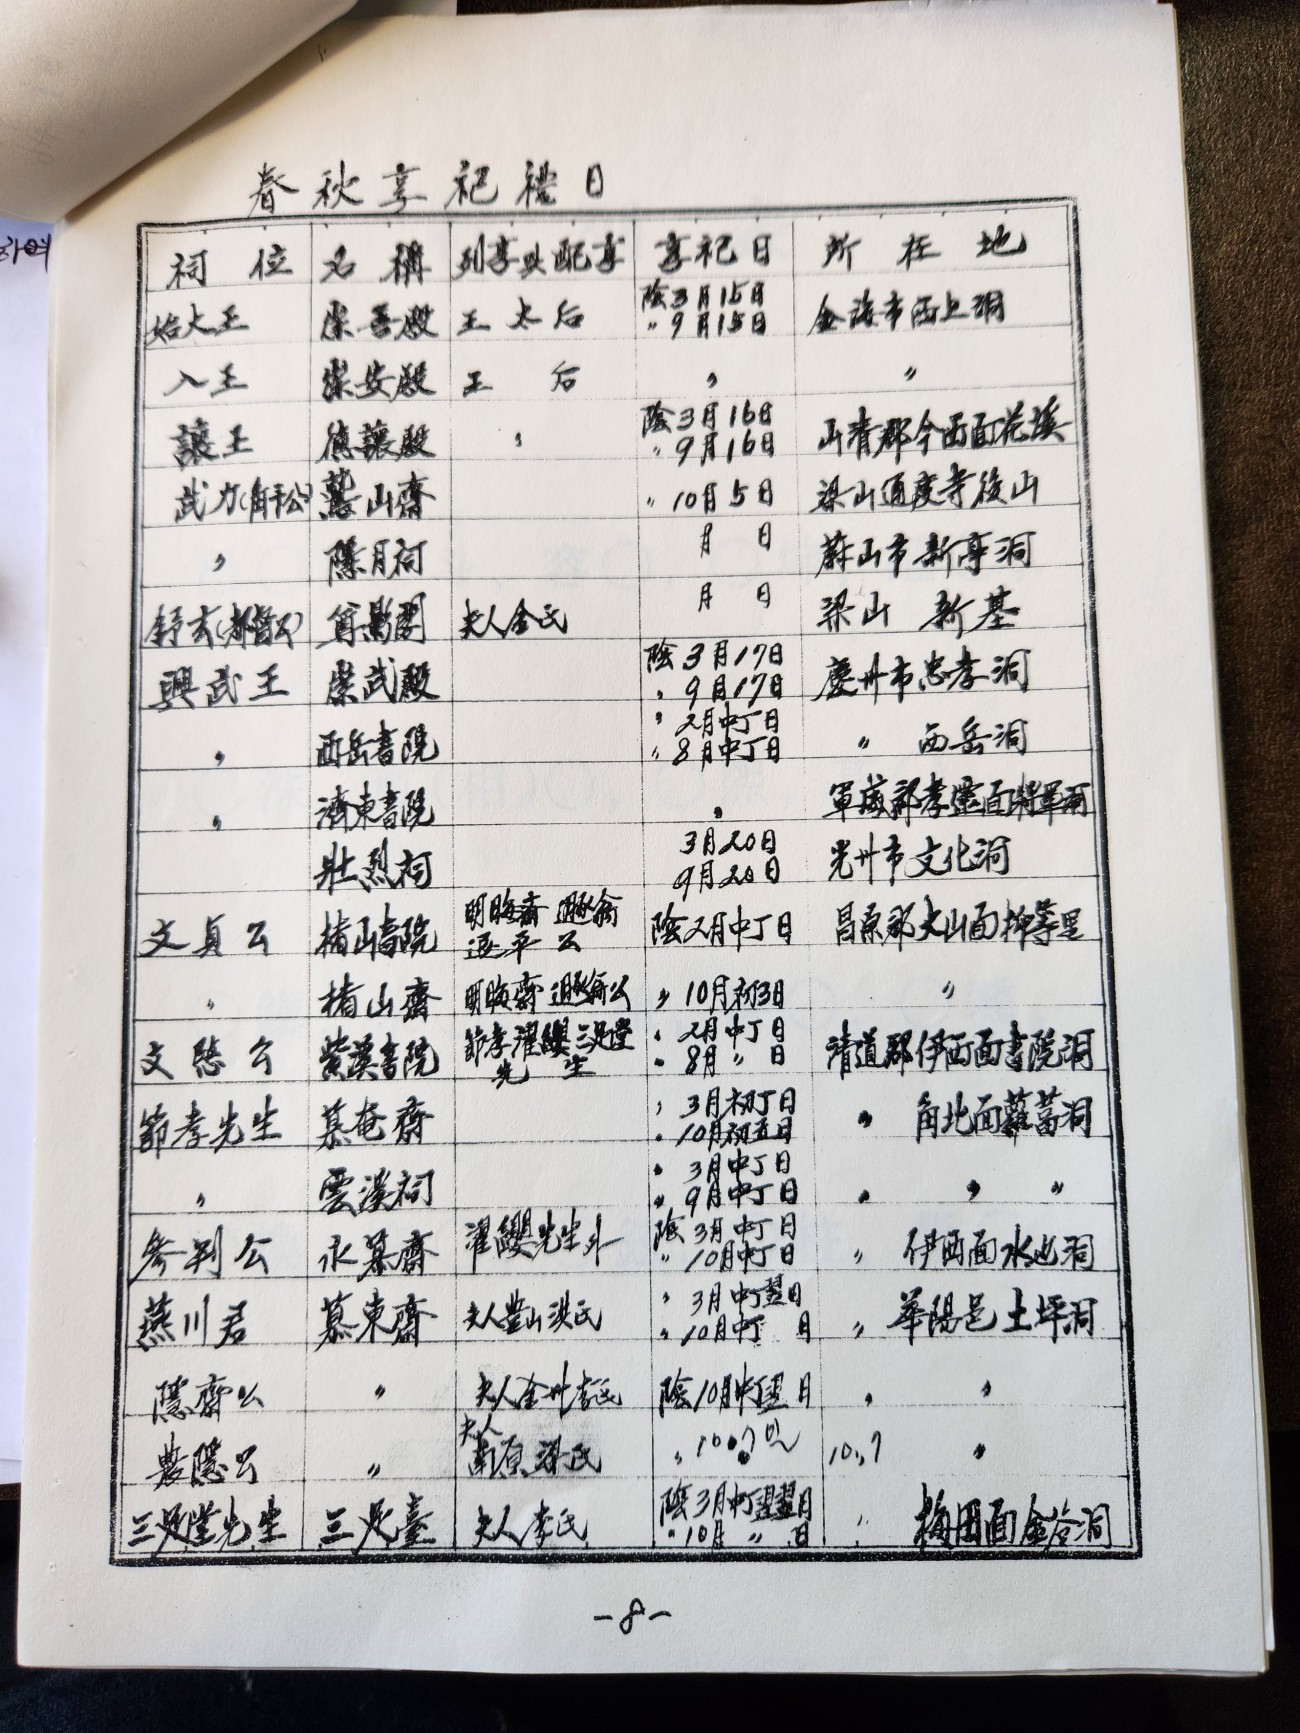 春秋享祀禮日
祠位 名稱 列享以配享 享祀日 所在地
始大王 崇善殿 王太后 陰3月15日 〃9月15日 金海市西上洞
八王 崇安殿 王后 〃 〃
讓王 德讓殿 〃 陰3月16日 〃9月16日 山淸郡今西面花溪
武力(角干公) 鷲山齋 〃10月5日 梁山通度寺後山
〃 隱月祠 月 日 蔚山市新亭洞
舒玄(都督公) 夫人金氏 月 日 梁山 新基
興武王 崇武殿 陰3月17日 〃9月17日 慶州市忠孝洞
〃 西岳書院 〃2月中丁日 〃8月中丁日 〃 西岳洞
〃 濟東書院 〃 軍威郡孝靈面將軍洞
壯烈祠 3月20日 9月20日 光州市文化洞
文貞公 楮山書院 明晦齋 退平公 陰2月中丁日 昌原郡大山面
〃 楮山齋 明晦齋 〃10月初3日 〃
文愍公 紫溪書院 節孝濯纓三足堂先生 〃2月中丁日 〃8月〃日 淸道郡伊西面書院洞
節孝先生 慕庵齋 〃3月初丁日 〃10月初五日 〃 角北面
〃 雲溪祠 〃3月中丁日 〃9月中丁日 〃 〃 〃
參判公 永慕齋 濯纓先生外 陰3月中丁日 〃10月中丁日 〃 伊西面水也洞
燕川君 慕東齋 夫人豊山洪氏 〃3月中丁翌日 〃10月中丁 日 〃 華陽邑土坪洞
隱齋公 〃 夫人全州李氏 陰10月中丁翌日 〃 〃
農隱公 〃 夫人南原梁氏 〃 10.7 〃
三足堂先生 三足臺 夫人李氏 陰3月中丁翌翌日 〃10月〃日 〃 梅田面金谷洞
-8-